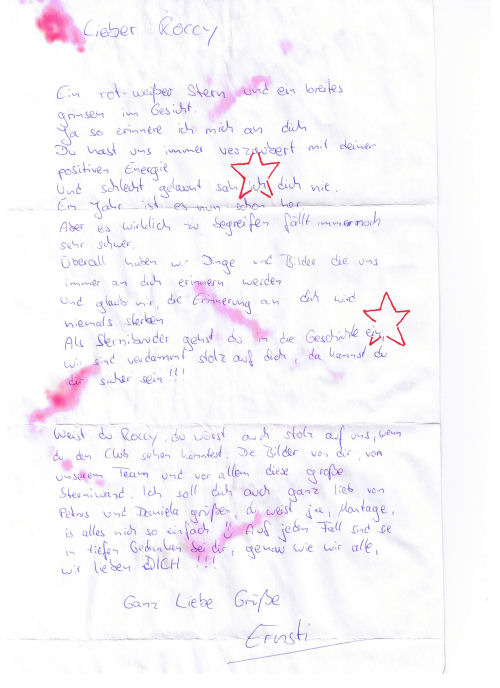 Lieber Roccy
Ein rot-weißer Stern und ein breites
grinsen im Gesicht.
Ja so erinnere ich mich an dich
Du hast uns immer verzaubert mit deiner
positiven Energie
Und schlecht gelaunt sah ich dich nie.
Ein Jahr ist es nun schon her
Aber es wirklich zu begreifen fällt immernoch
sehr schwer.
Überall haben wir Dinge und Bilder die uns
immer an dich erinnern werden
Und glaub mir, die Erinnerung an dich wird
niemals sterben
Als Sternibruder gehst du in die Geschichte ein,
wir sind verdammt stolz auf dich, da kannst du
dir sicher sein!!!
Weist du Roccy, du wärst auch stolz auf uns, wenn
du den Club sehen könntest. Die Bilder von dir, von
unserem Team und vor allem diese große
Sterniwand. Ich soll dich auch ganz lieb von
Petrus und Daniela grüßen, du weist ja, Montage,
is alles nich so einfach Ü Auf jeden Fall sind sie
in tiefen Gedanken bei dir, genau wie wir alle,
wir lieben DICH !!!
Ganz Liebe Grüße
Ernsti